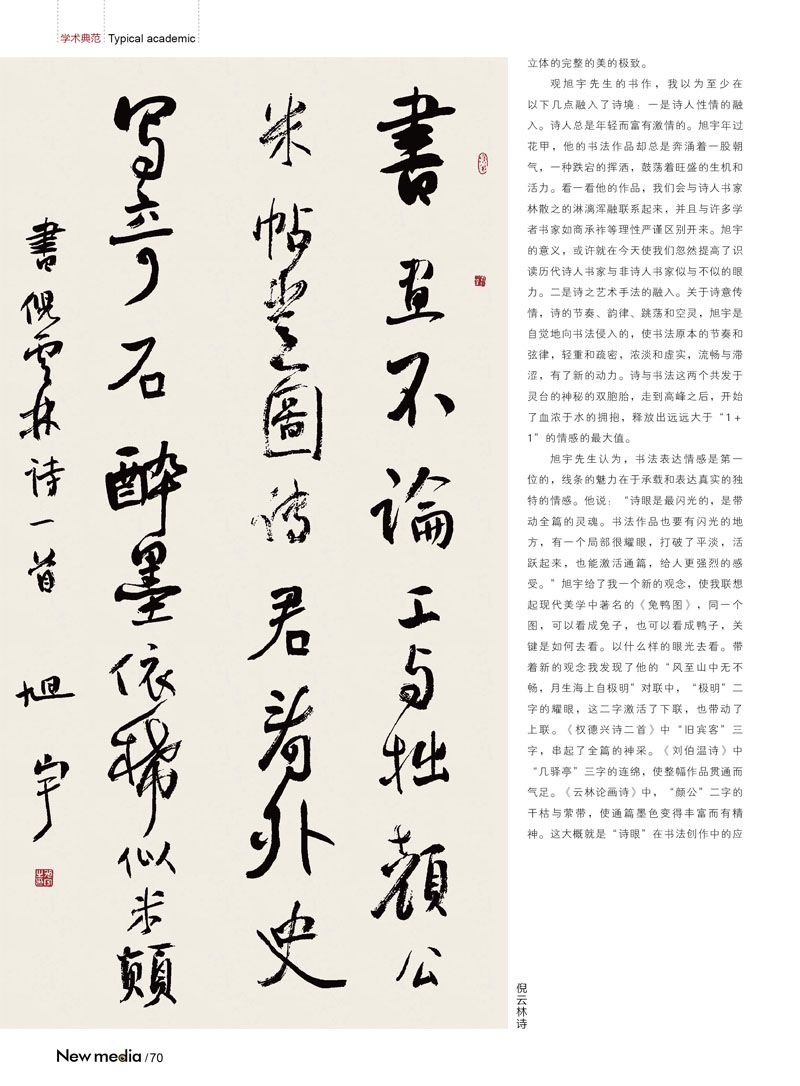 学术典范 Typical academic
書畫不論工与拙顏公
米帖豈圖傳君看外史
寫奇石醉墨依稀似米顛
書倪雲林诗一首
旭宇
倪云林诗
立体的完整的美的极致。
观旭宇先生的书作，我以为至少在
以下几点融入了诗境：一是诗人性情的融
入。诗人总是年轻而富有激情的。旭宇年过
花甲，他的书法作品却总是奔涌着一股朝
气，一种跌宕的挥洒，鼓荡着旺盛的生机和
活力。看一看他的作品，我们会与诗人书家
林散之的淋漓浑融联系起来，并且与许多学
者书家如商承祚等理性严谨区别开来。旭宇
的意义，或许就在今天使我们忽然提高了识
读历代诗人书家与非诗人书家似与不似的眼
力。二是诗之艺术手法的融入。关于诗意传
情，诗的节奏、韵律、跳荡和空灵，旭宇是
自觉地向书法侵入的，使书法原本的节奏和
弦律，轻重和疏密，浓淡和虚实，流畅与滞
涩，有了新的动力。诗与书法这两个共发于
灵台的神秘的双胞胎，走到高峰之后，开始
了血浓于水的拥抱，释放出远远大于“1+
1”的情感的最大值。
旭宇先生认为，书法表达情感是第一
位的，线条的魅力在于承载和表达真实的独
特的情感。他说：“诗眼是最闪光的，是带
动全篇的灵魂。书法作品也要有闪光的地
方，有一个局部很耀眼，打破了平淡，活
跃起来，也能激活通篇，给人更强烈的感
受。”旭宇给了我一个新的观念，使我联想
起现代美学中著名的《兔鸭图》，同一个
图，可以看成兔子，也可以看成鸭子，关
键是如何去看。以什么样的眼光去看。带
着新的观念我发现了他的“风至山中无不
畅，月生海上自极明”对联中，“极明”二
字的耀眼，这二字激活了下联，也带动了
上联。《权德兴诗二首》中“旧宾客”三
字，串起了全篇的神采。《刘伯温诗》中
“几驿亭”三字的连绵，使整幅作品贯通而
气足。《云林论画诗》中，“颜公”二字的
干枯与萦带，使通篇墨色变得丰富而有精
神。这大概就是“诗眼”在书法创作中的应
New media /70